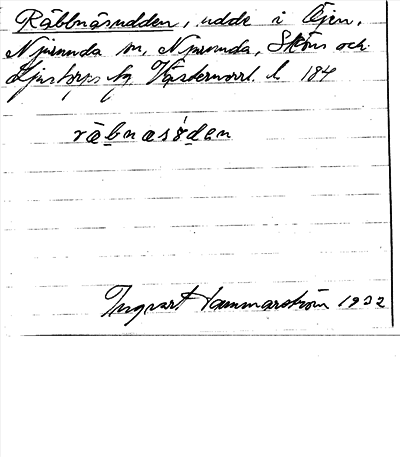 Räbbnäsudden, udde i Öjen,
Njurunda sn, Njurunda, Sköns och
Ljustorps tg Västernorrl. l 184
räbnæsúden
Ingvart Hammarström 1932